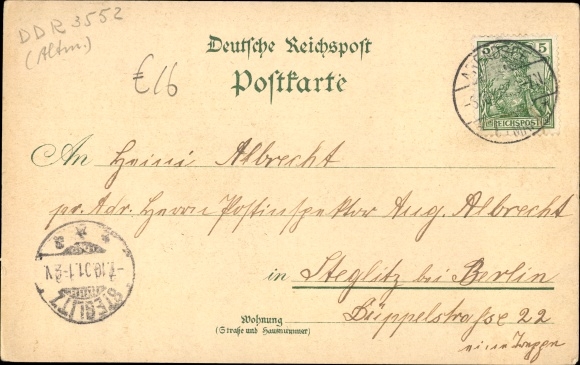 DDR 3552
(Altm.)
Deutsche Reichspost
Postkarte
€16
5
REICHSPOST
An Heini Albrecht
pr. Adr. Herrn Postinspektor Aug. Albrecht
in Steglitz bei Berlin
Wohnung
(Straße und Hausnummer)
Düppelstrasse 22
eine Treppe
STEGLITZ
7.10.01.1-2V